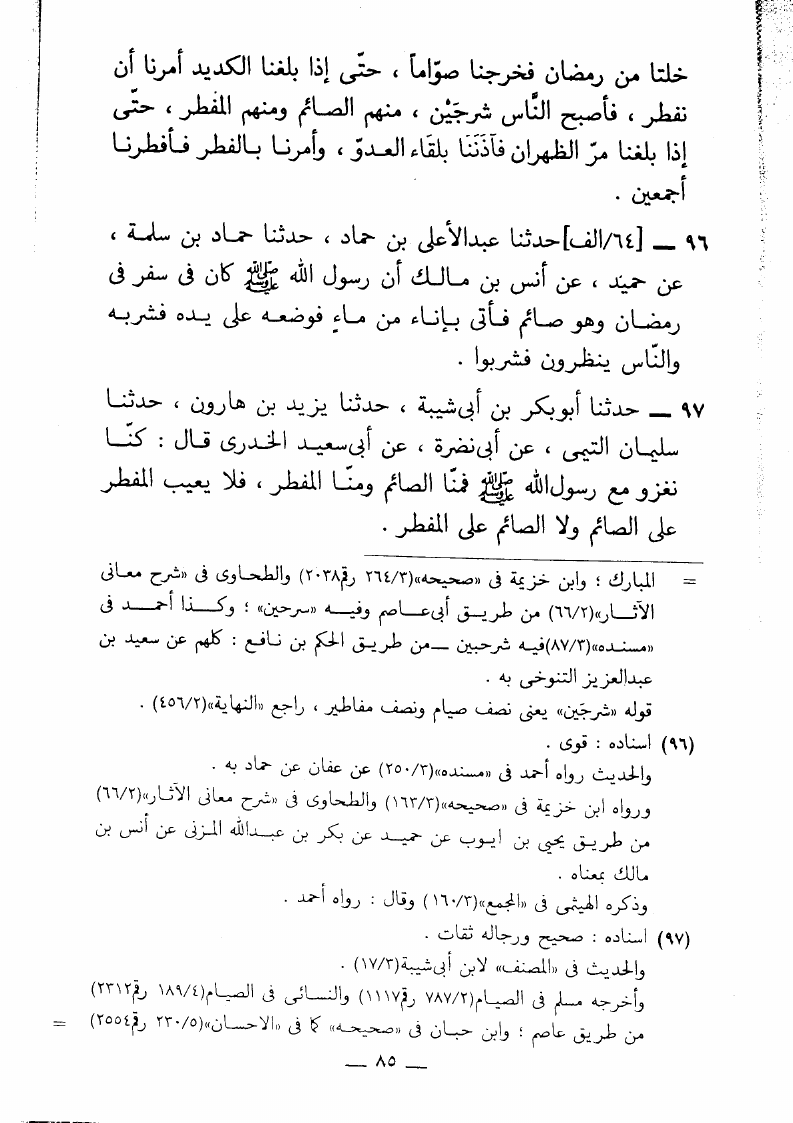 خلتا من رمضان فخرجنا صوّاماً ، حتّى إذا بلغنا الكديد أمرنا أن
نفطر ، فأصبح النَّاس شرجَيْن ، منهم الصائم ومنهم المفطر ، حتّى
إذا بلغنا مرّ الظهران فآذَنَنَا بلقَاء العدوّ ، وأمرنا بالفطر فأفطرنا
أجمعين .
٩٦ ــ [٦٤/الف]حدثنا عبدالأعلى بن حماد ، حدثنا حماد بن سلمة ،
عن حميَد ، عن أنس بن مالك أن رسول الله ﷺ كان فى سفر فى
رمضان وهو صائم فأتى بإناء من ماءٍ فوضعه على يده فشربه
والنّاس ينظرون فشربوا .
٩٧ ــ حدثنا أبوبكر بن أبى‌شيبة ، حدثنا يزيد بن هارون ، حدثنا
سليمان التيمى ، عن أبى‌نضرة ، عن أبى‌سعيد الخدرى قال : كنّا
نغزو مع رسول‌الله ﷺ فمنّا الصائم ومنّا المفطر ، فلا يعيب المفطر
على الصائم ولا الصائم على المفطر .
= المبارك ؛ وابن خزيمة فى «صحيحه»(٢٦٤/٣ رقم٢٠٣٨) والطحاوى فى «شرح معانى
الآثار»(٦٦/٢) من طريق أبى‌عاصم وفيه «سرحين» ؛ وكذا أحمد فى
«مسنده»(٨٧/٣)فيه شرحبين ــ من طريق الحكم بن نافع : كلهم عن سعيد بن
عبدالعزيز التنوخى به .
قوله «شرجَين» يعنى نصف صيام ونصف مفاطير ، راجع «النهاية»(٤٥٦/٢) .
(٩٦) اسناده : قوى .
والحديث رواه أحمد فى «مسنده»(٢٥٠/٣) عن عفان عن حماد به .
ورواه ابن خزيمة فى «صحيحه»(١٦٣/٣) والطحاوى فى «شرح معانى الآثار»(٦٦/٢)
من طريق يحيى بن ايوب عن حميد عن بكر بن عبدالله المزنى عن أنس بن
مالك بمعناه .
وذكره الهيثمى فى «المجمع»(١٦٠/٣) وقال : رواه أحمد .
(٩٧) اسناده : صحيح ورجاله ثقات .
والحديث فى «المصنف» لابن أبى‌شيبة(١٧/٣) .
وأخرجه مسلم فى الصيام(٧٨٧/٢ رقم١١١٧) والنسائى فى الصيام(١٨٩/٤ رقم٢٣١٢)
من طريق عاصم ؛ وابن حبان فى «صحيحه» كما فى «الاحسان»(٢٣٠/٥ رقم٢٥٥٤) =
ــ ٨٥ ــ